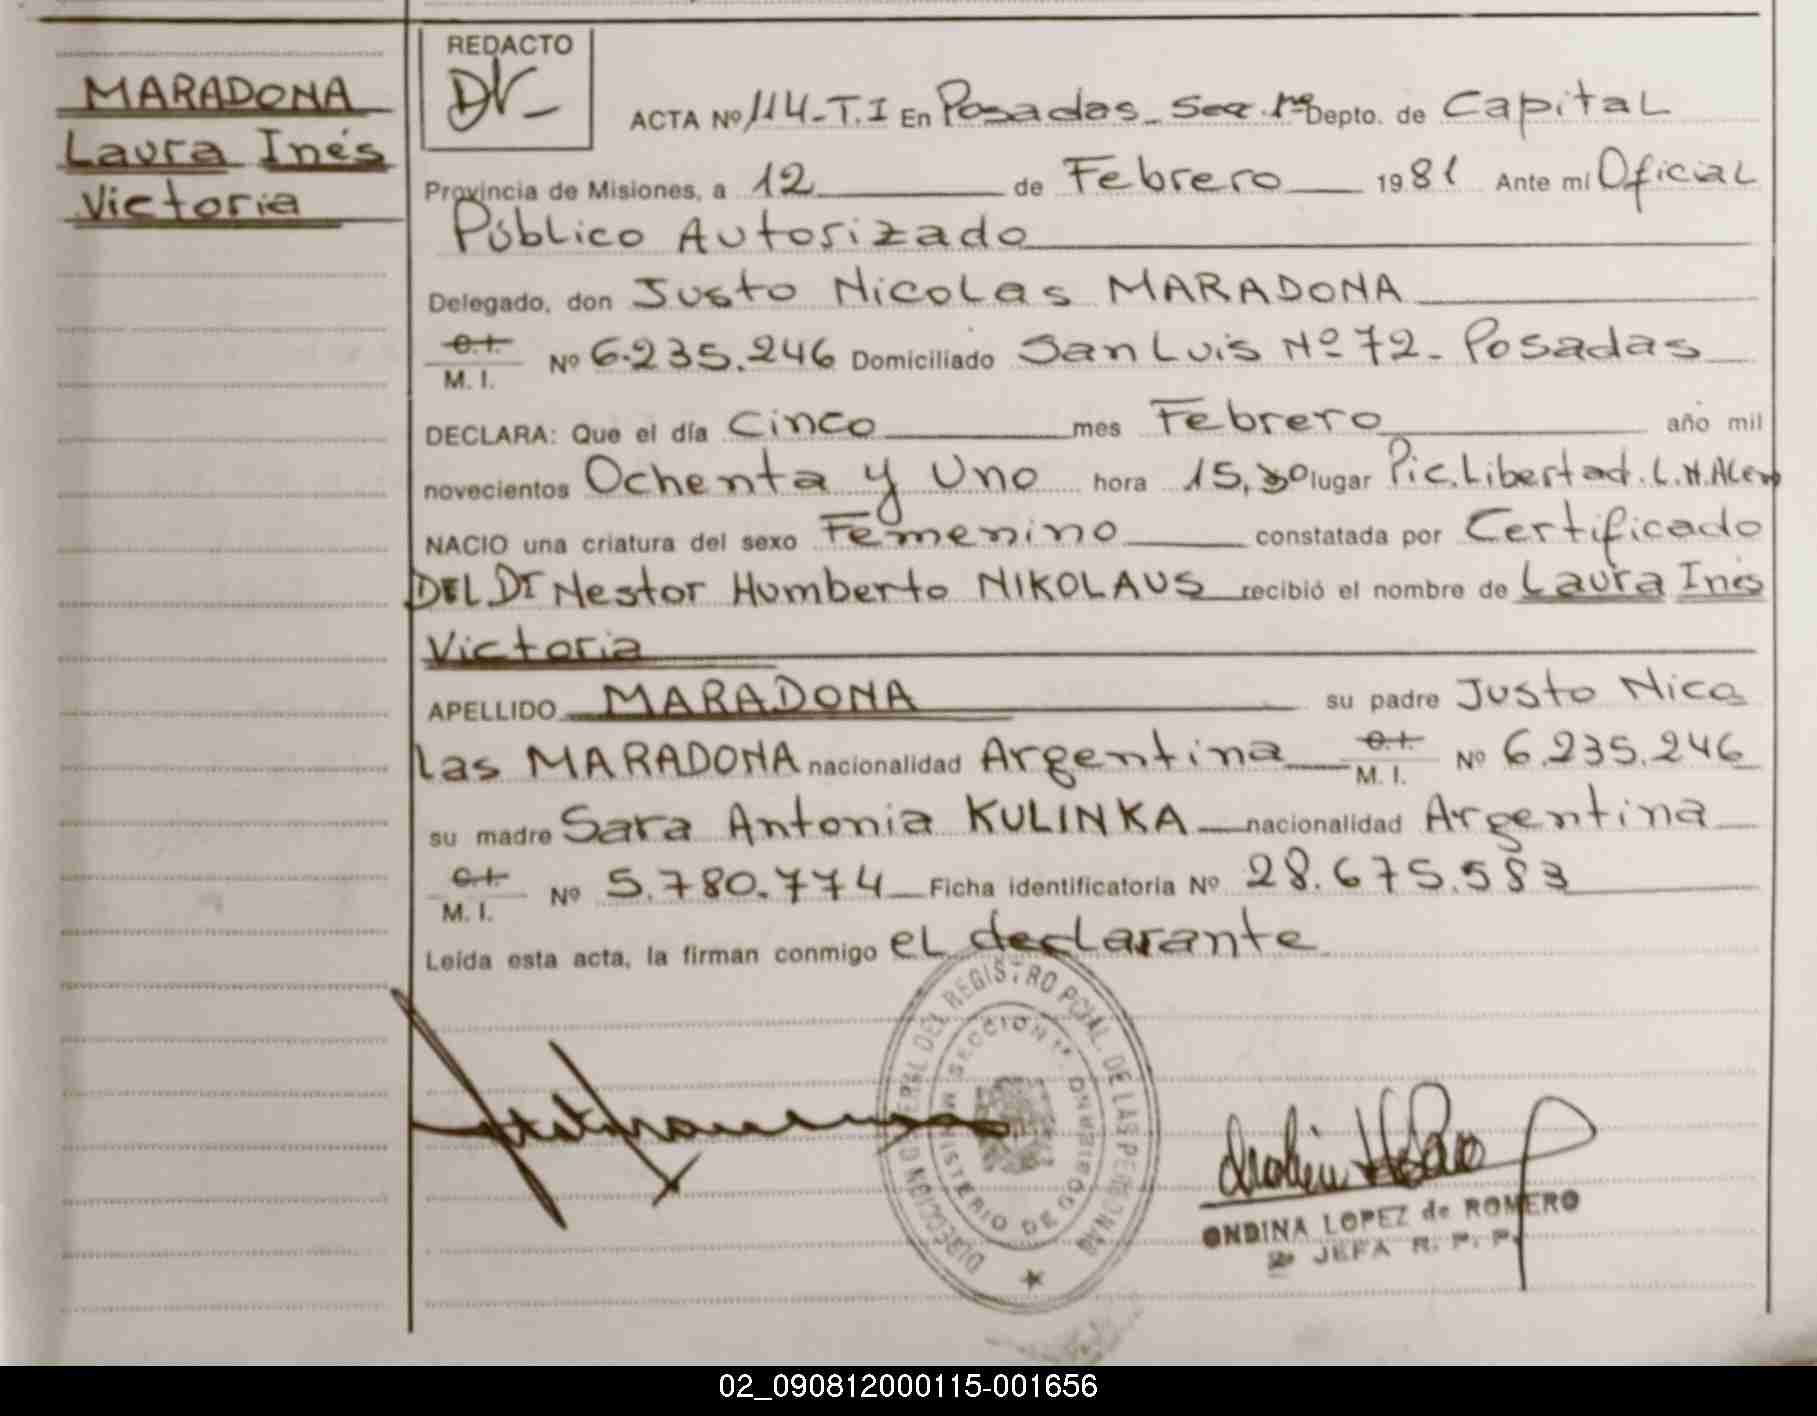 MARADONA
Laura Inés
Victoria
REDACTO
ACTA Nº 114-T.I En Posadas - Secc. 1ª Depto. de Capital
Provincia de Misiones, a 12 de Febrero 1981 Ante mí Oficial
Público Autorizado
Delegado, don Justo Nicolas MARADONA
C.I.
M. I. Nº 6.235.246 Domiciliado San Luis Nº 72 - Posadas
DECLARA: Que el día Cinco mes Febrero año mil
novecientos Ochenta y Uno hora 15,30 lugar Pic. Libertad. L.N. Alem
NACIO una criatura del sexo Femenino constatada por Certificado
DEL Dr Nestor Humberto NIKOLAUS recibió el nombre de Laura Inés
Victoria
APELLIDO MARADONA su padre Justo Nico
las MARADONA nacionalidad Argentina C.I. M. I. Nº 6.235.246
su madre Sara Antonia KULINKA nacionalidad Argentina
C.I.
M. I. Nº 5.780.774 Ficha identificatoria Nº 28.675.583
Leída esta acta, la firman conmigo el declarante
DIRECCION GENERAL DEL REGISTRO PCIAL. DE LAS PERSONAS
SECCION 1ª
MINISTERIO DE GOBIERNO
ONDINA LOPEZ de ROMERO
JEFA R. P. P.
02_090812000115-001656